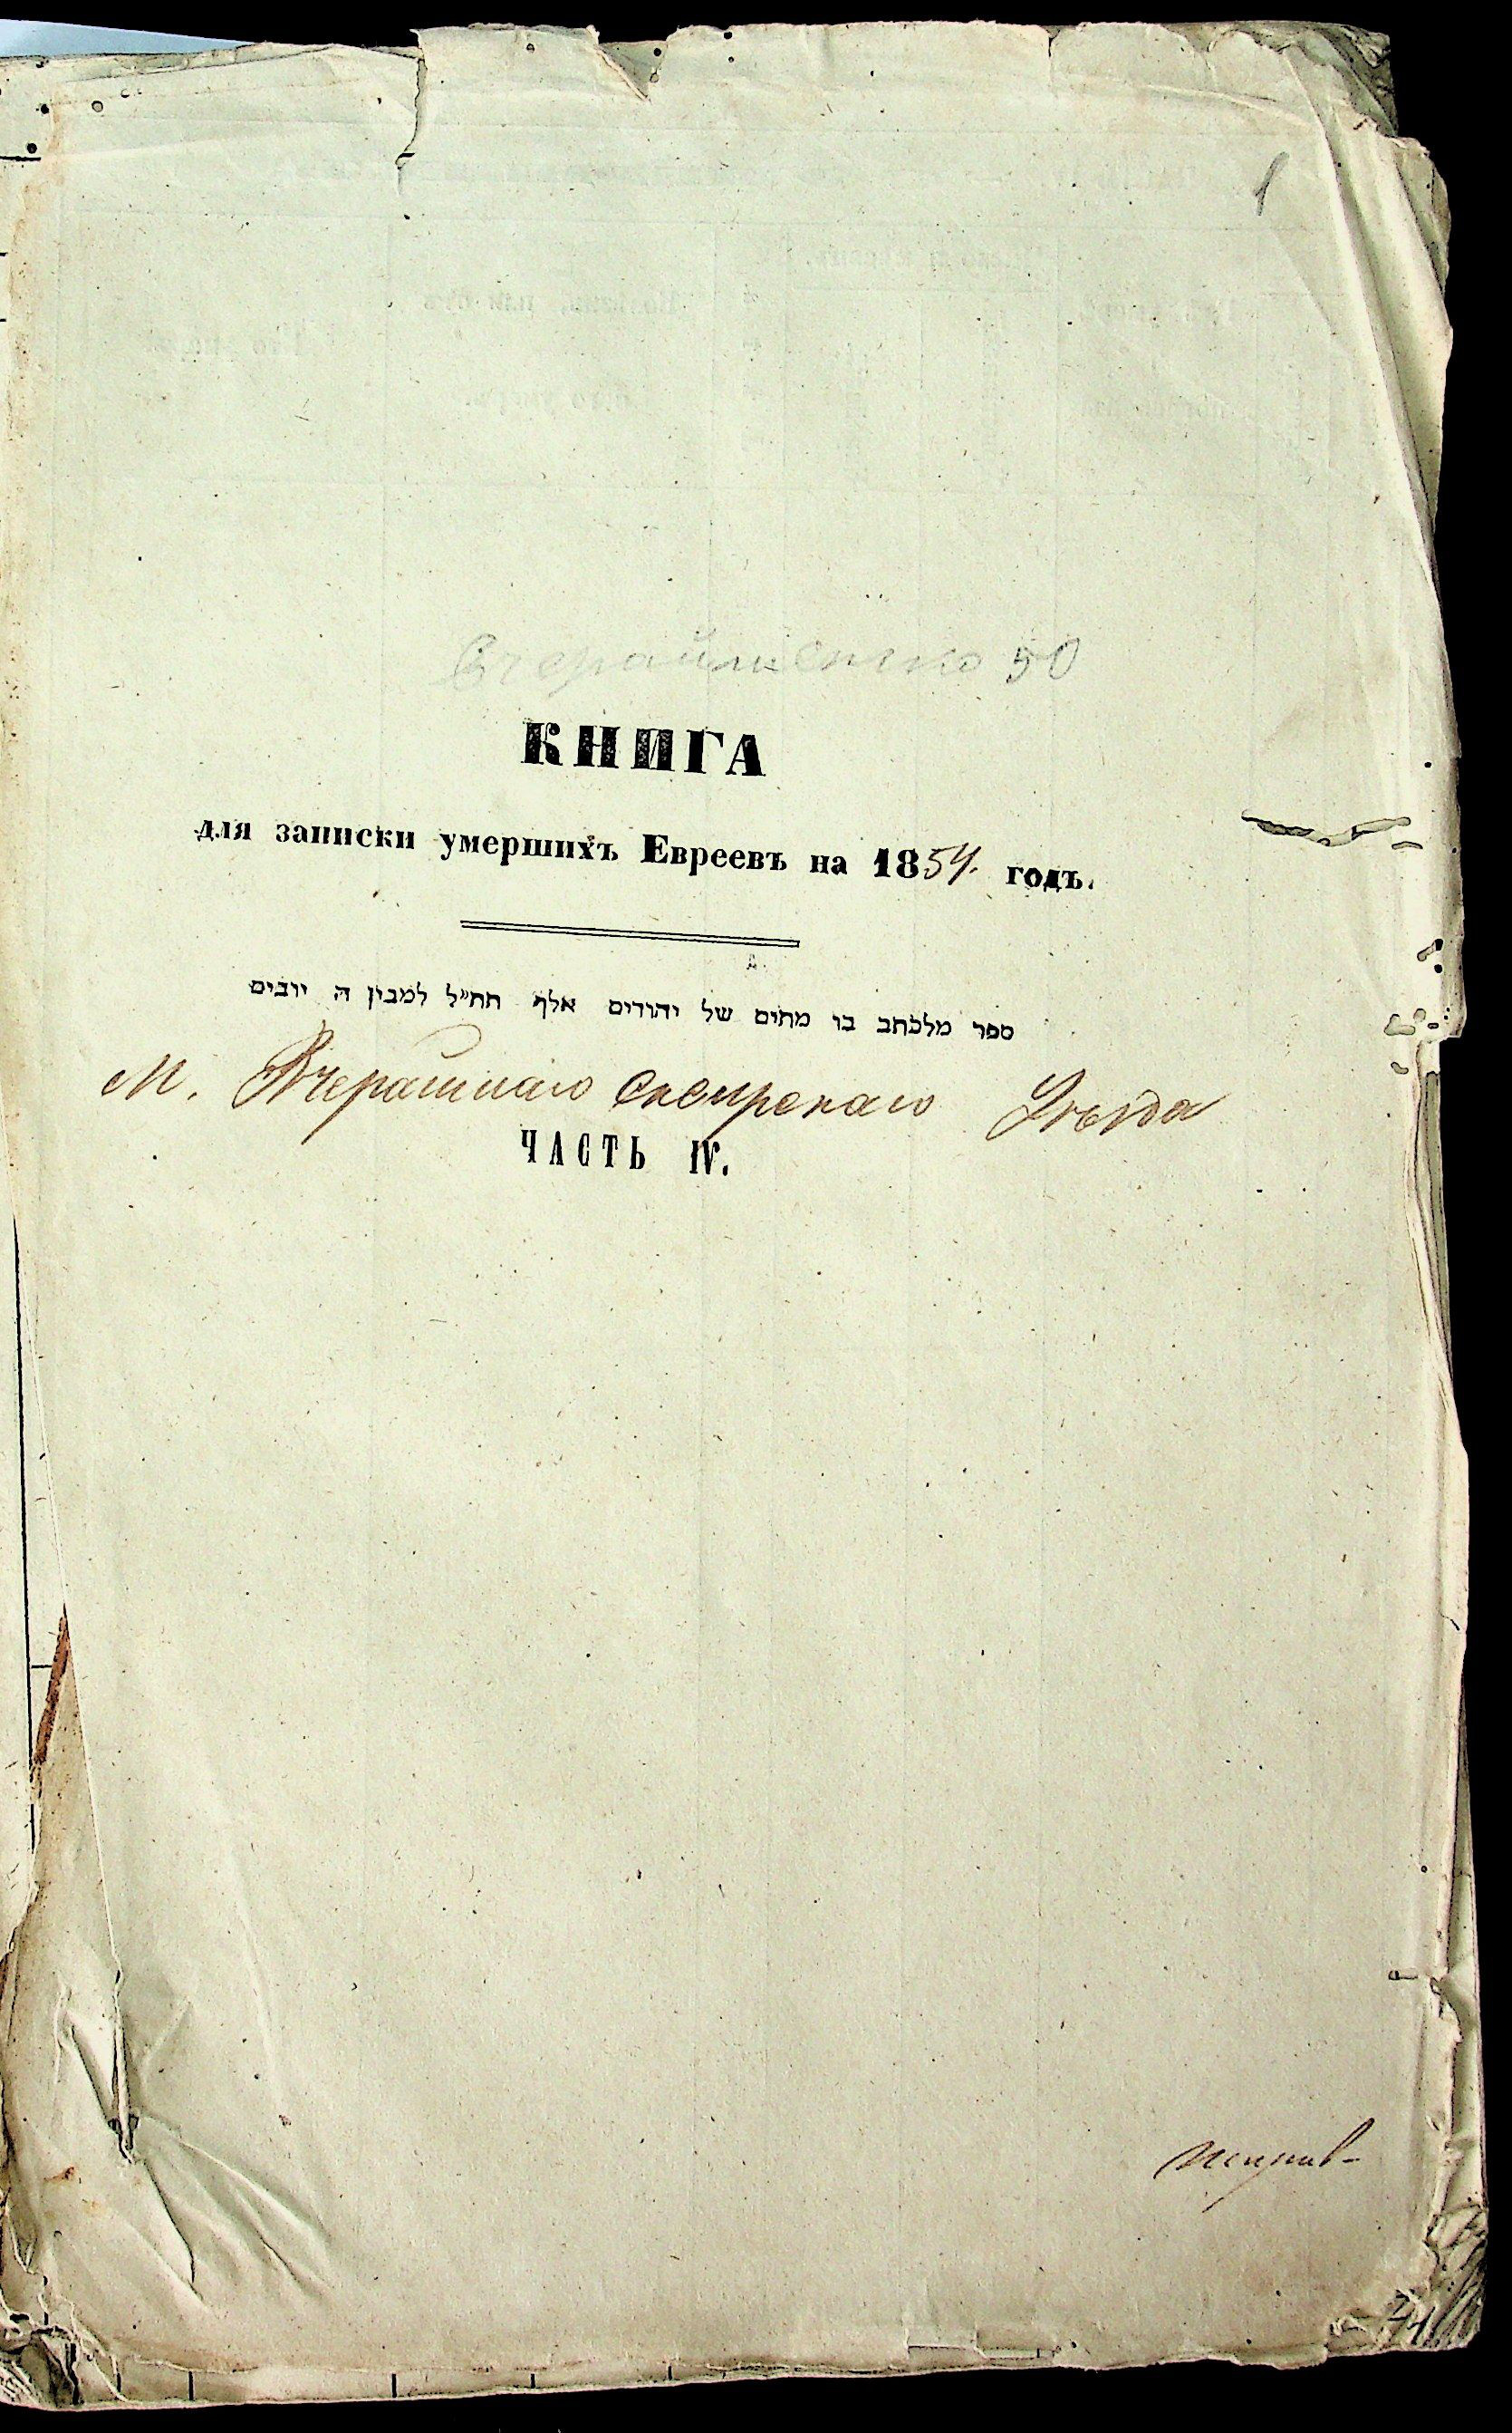 1
50
КНИГА
для записки умершихъ Евреевъ на 1854. годъ.
ספר מלכתב בו מתים של יהודים אלף תח״ל למבין ה יובים
М. Вчерашнаго Сквирскаго Уѣзда
ЧАСТЬ IV.